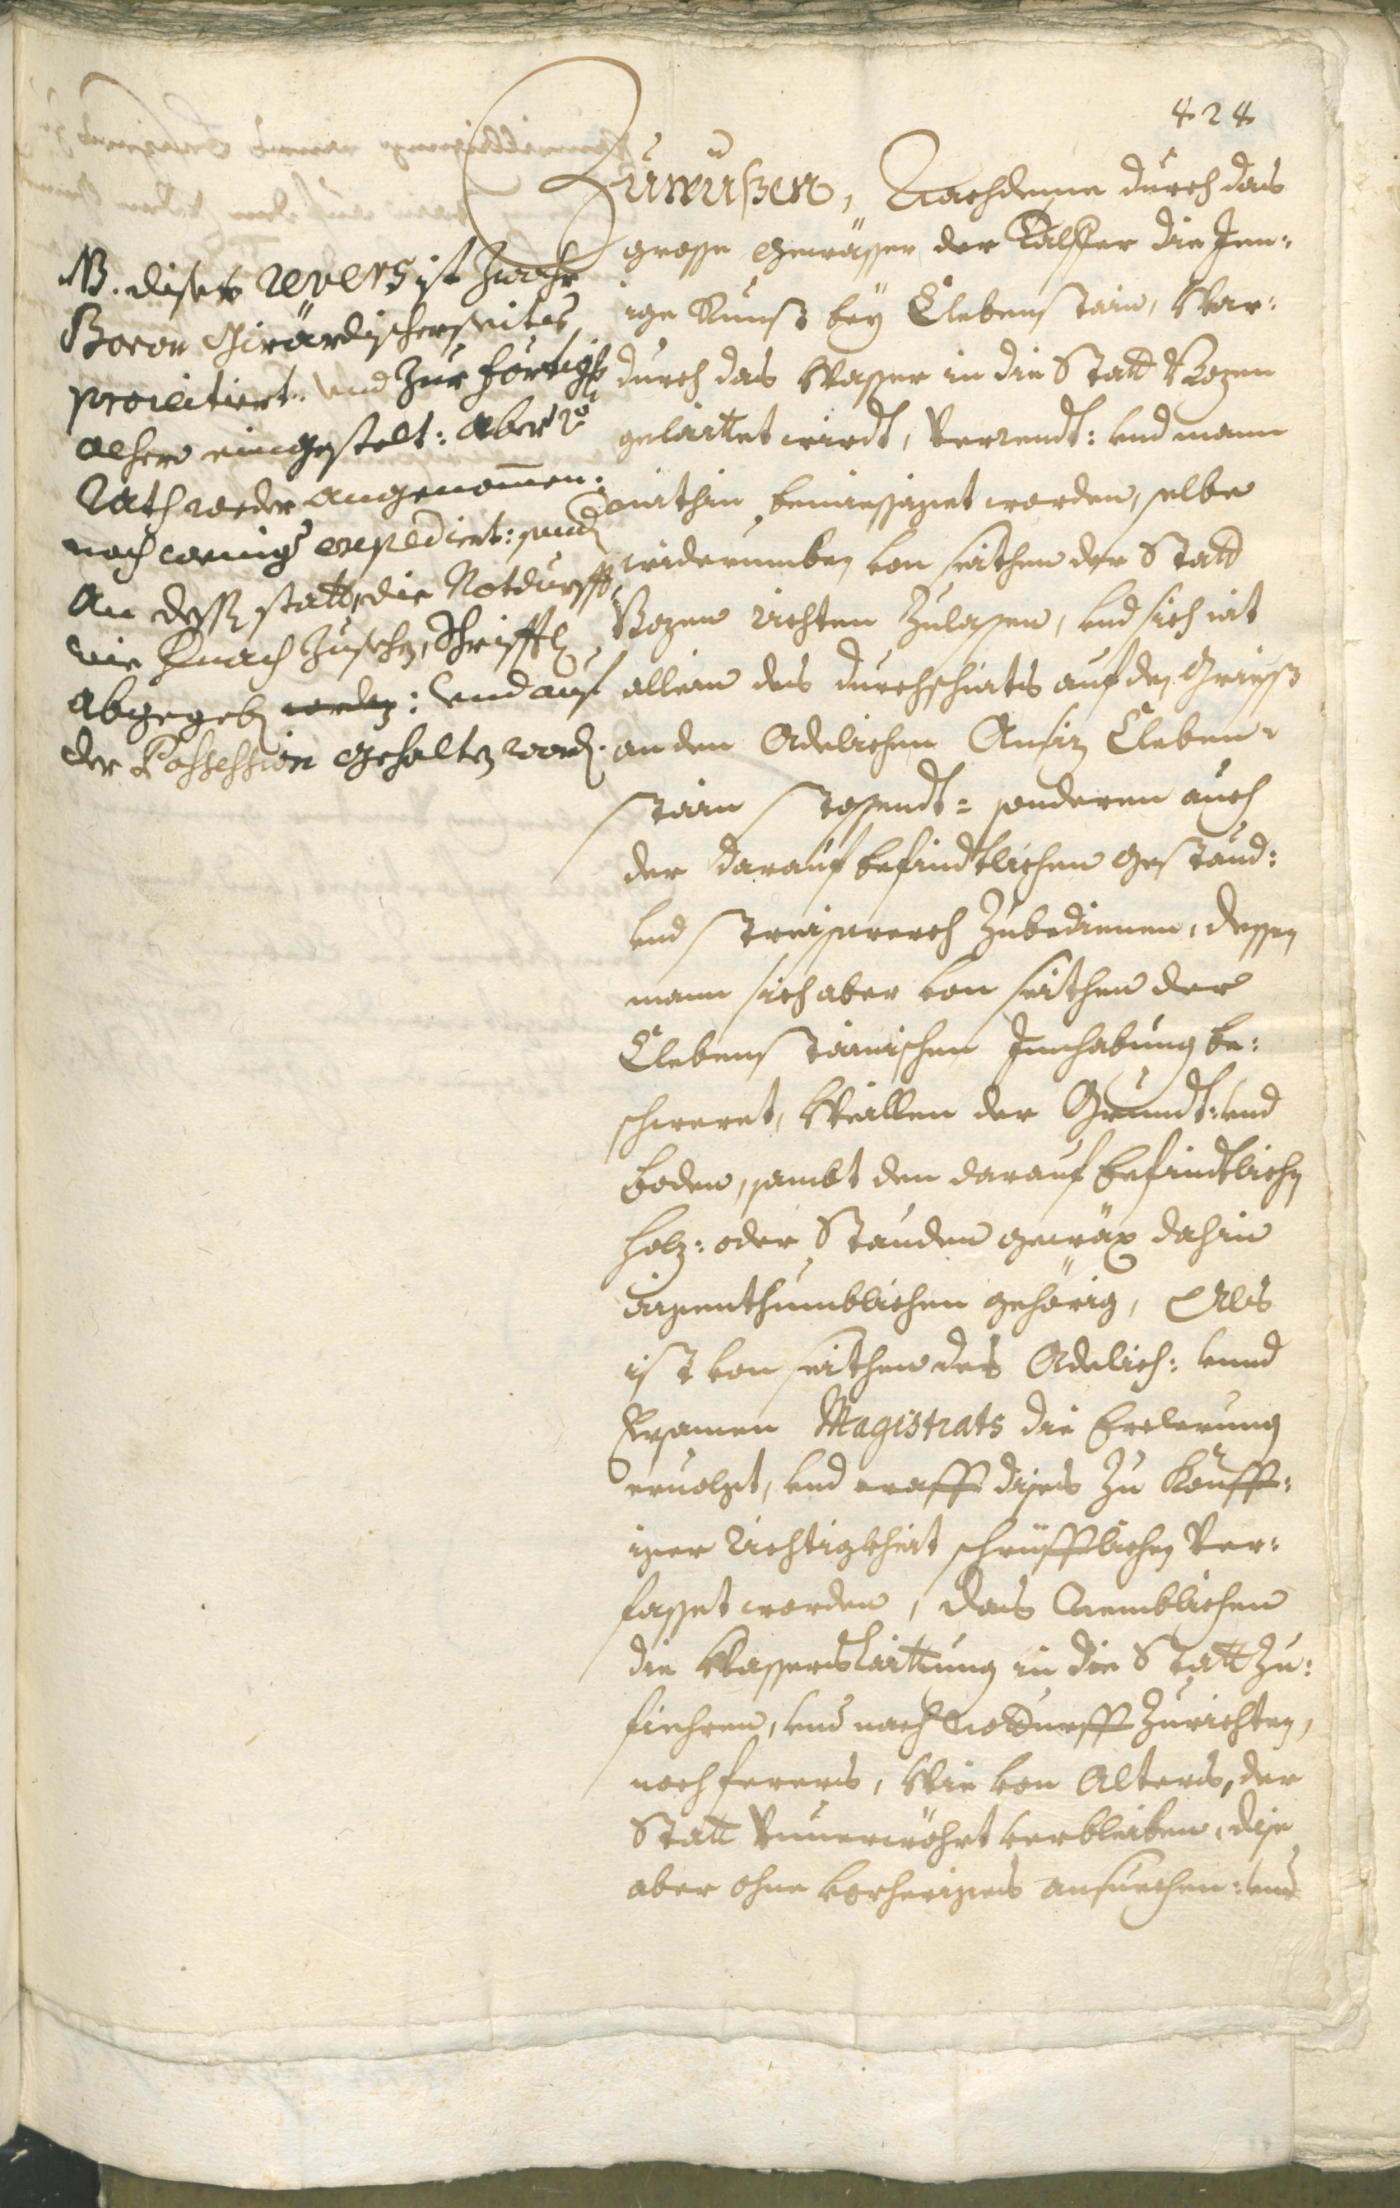 424
Zuwüßen, Nachdeme durch das
grosse gewässer der Talffer die Jen-
ige Runst bey Clebenstain, War-
durch das Wasser in die Statt Bozen
gelaittet wirdt, Verrendt: und mann
mithin bemiessiget worden, selbe
widerumben von seithen der Statt
Bozen richten Zulassen, und sich nit
allein des durchschnits auf den Griess
an den Adelichen Ansiz Cleben-
stain stossendt: sonderen auch
der darauf befindtlichen gestaud:
und Streiswerch Zubedienen, dessen
mann sich aber von seithen der
Clebenstainischen Innhabung be:
schweret, Weillen der Grundt: und
boden, sambt den darauf befindtlichen
holz: oder Stauden gewäx dahin
aigenthumblichen gehörig, Als
ist von seithen des Adelich: unnd
Ersamen Magistrats die Erclerung
ervolgt, und crafft dises Zu Konfft:
iger Richtigkheit schrüfftlichen Ver:
fasset worden, das Nemblichen
die Wasserslaittung in die Statt Zu:
fiehren, und nach Notdurfft Zurichten,
noch ferers, Wie von Alters, der
Statt Vnuerwöhrt verbleiben, dise
aber ohne vorheriges ansuechen: und
NB. diser revers ist Zwahr
Baron Girardischerseits,
proiectiert. und Zur förtig[ung]
alhero eingestelt: Aber v[on]
Rath weder angenommen:
noch weniger expediert: sund[ern]
An dessen statt, die Notdurfft,
wie hernach Zusechen, Schrifftl[ich]
abgegeben worden: und auf
der Possession gehalten word[en].